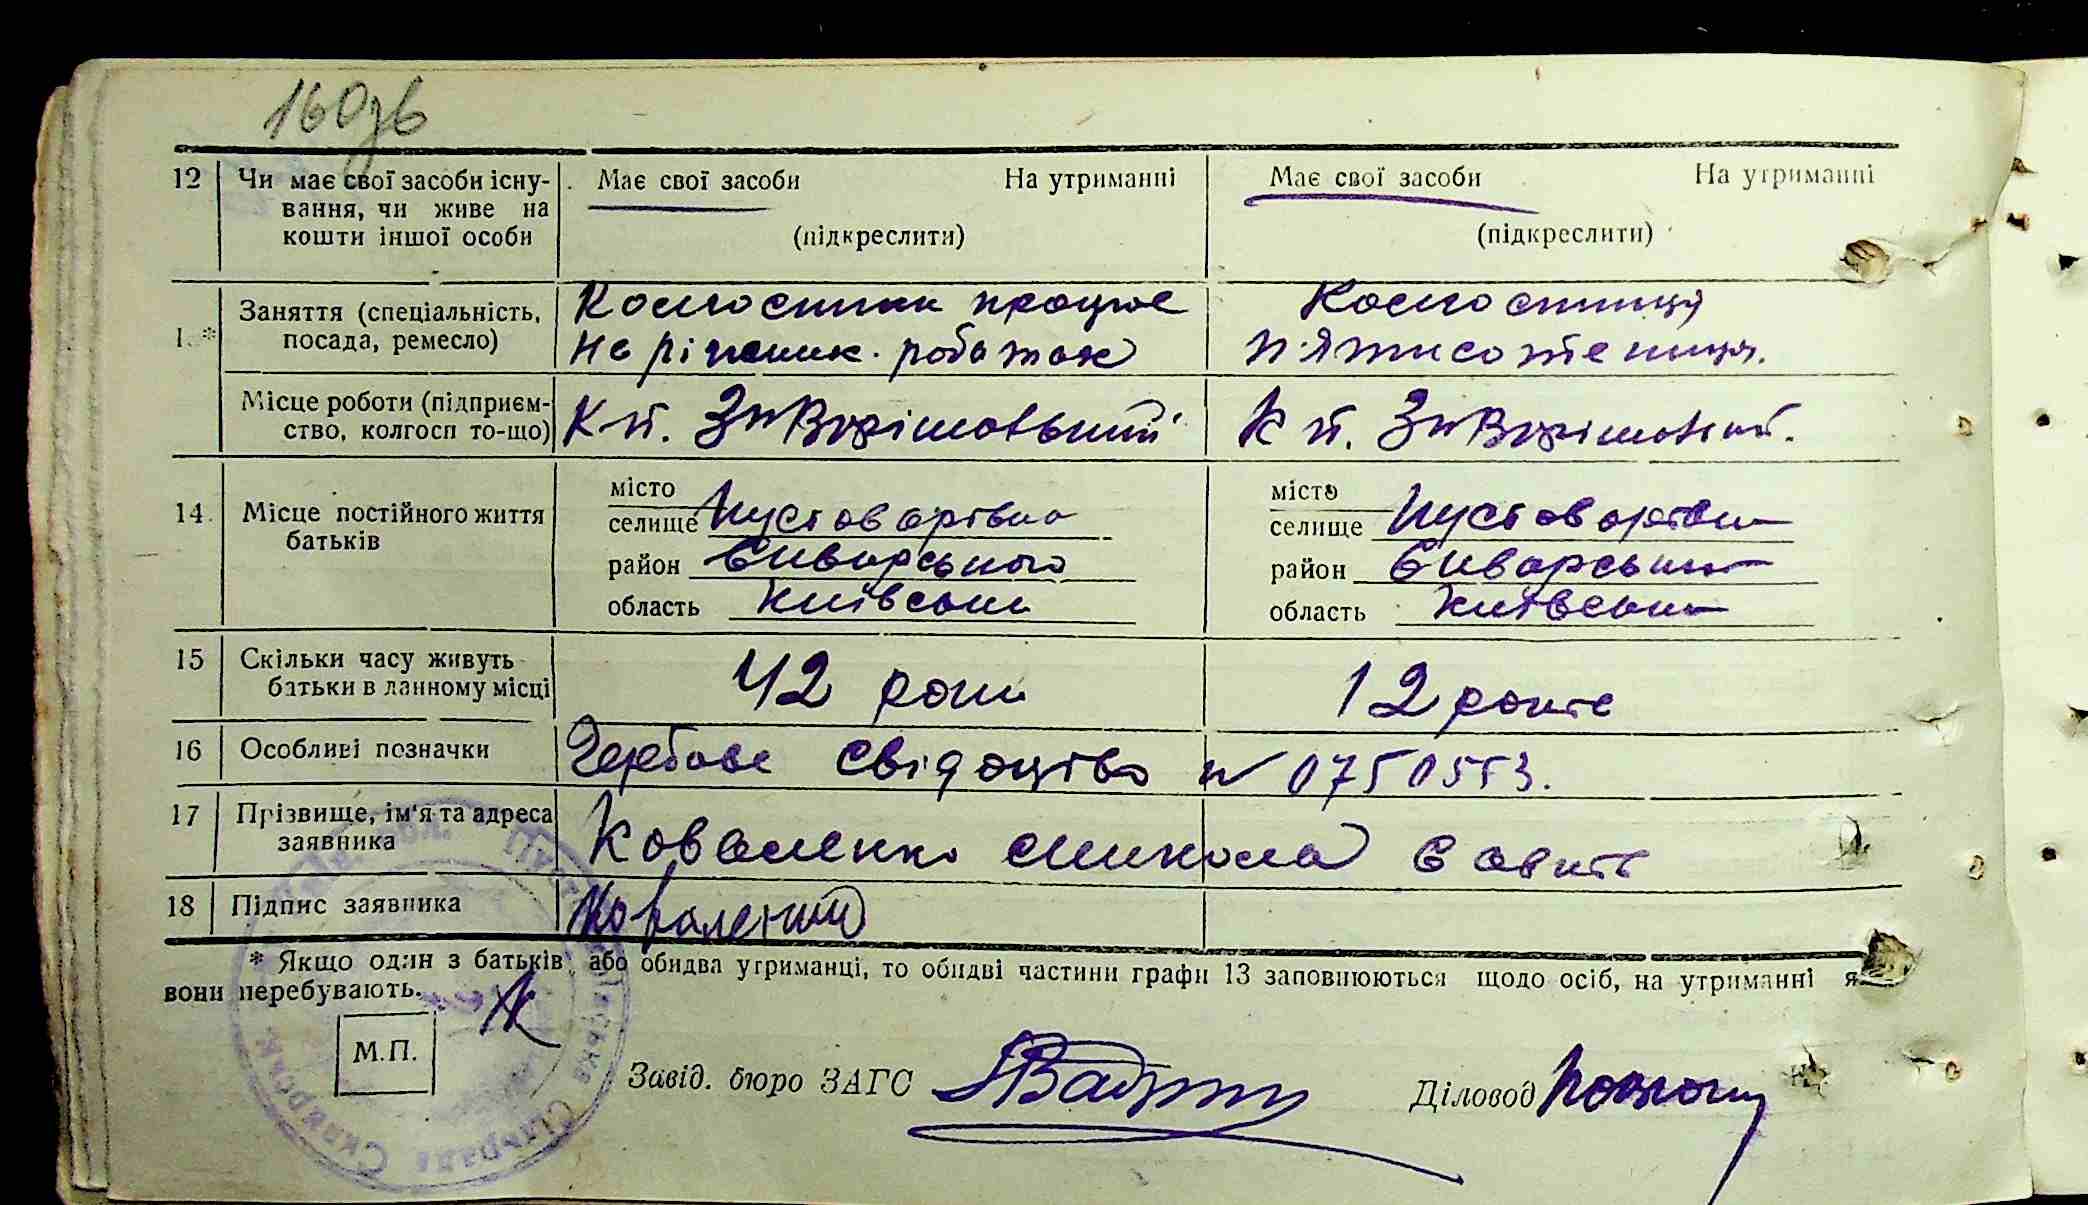 160зв
12 Чи має свої засоби існу- Має свої засоби На утриманні Має свої засоби На утриманні
вання, чи живе на
кошти іншої особи (підкреслити) (підкреслити)
Заняття (спеціальність, Колгоспник працює Колгоспниця
посада, ремесло) на різних роботах п'ятисотениця.
Місце роботи (підприєм-
ство, колгосп то-що) К-п. К п.
місто місто
14. Місце постійного життя селище Пустоварівка селище Пустоварівка
батьків район Сквирського район Сквирського
область Київська область Київська
15 Скільки часу живуть 42 роки 12 років
батьки в данному місці
16 Особливі позначки Гербове свідоцтво № 0750553.
17 Прізвище, ім'я та адреса Коваленко Микола Савич
заявника
18 Підпис заявника Коваленко
* Якщо один з батьків, або обидва утриманці, то обидві частини графи 13 заповнюються щодо осіб, на утриманні
вони перебувають.
М.П.
Завід. бюро ЗАГС Діловод